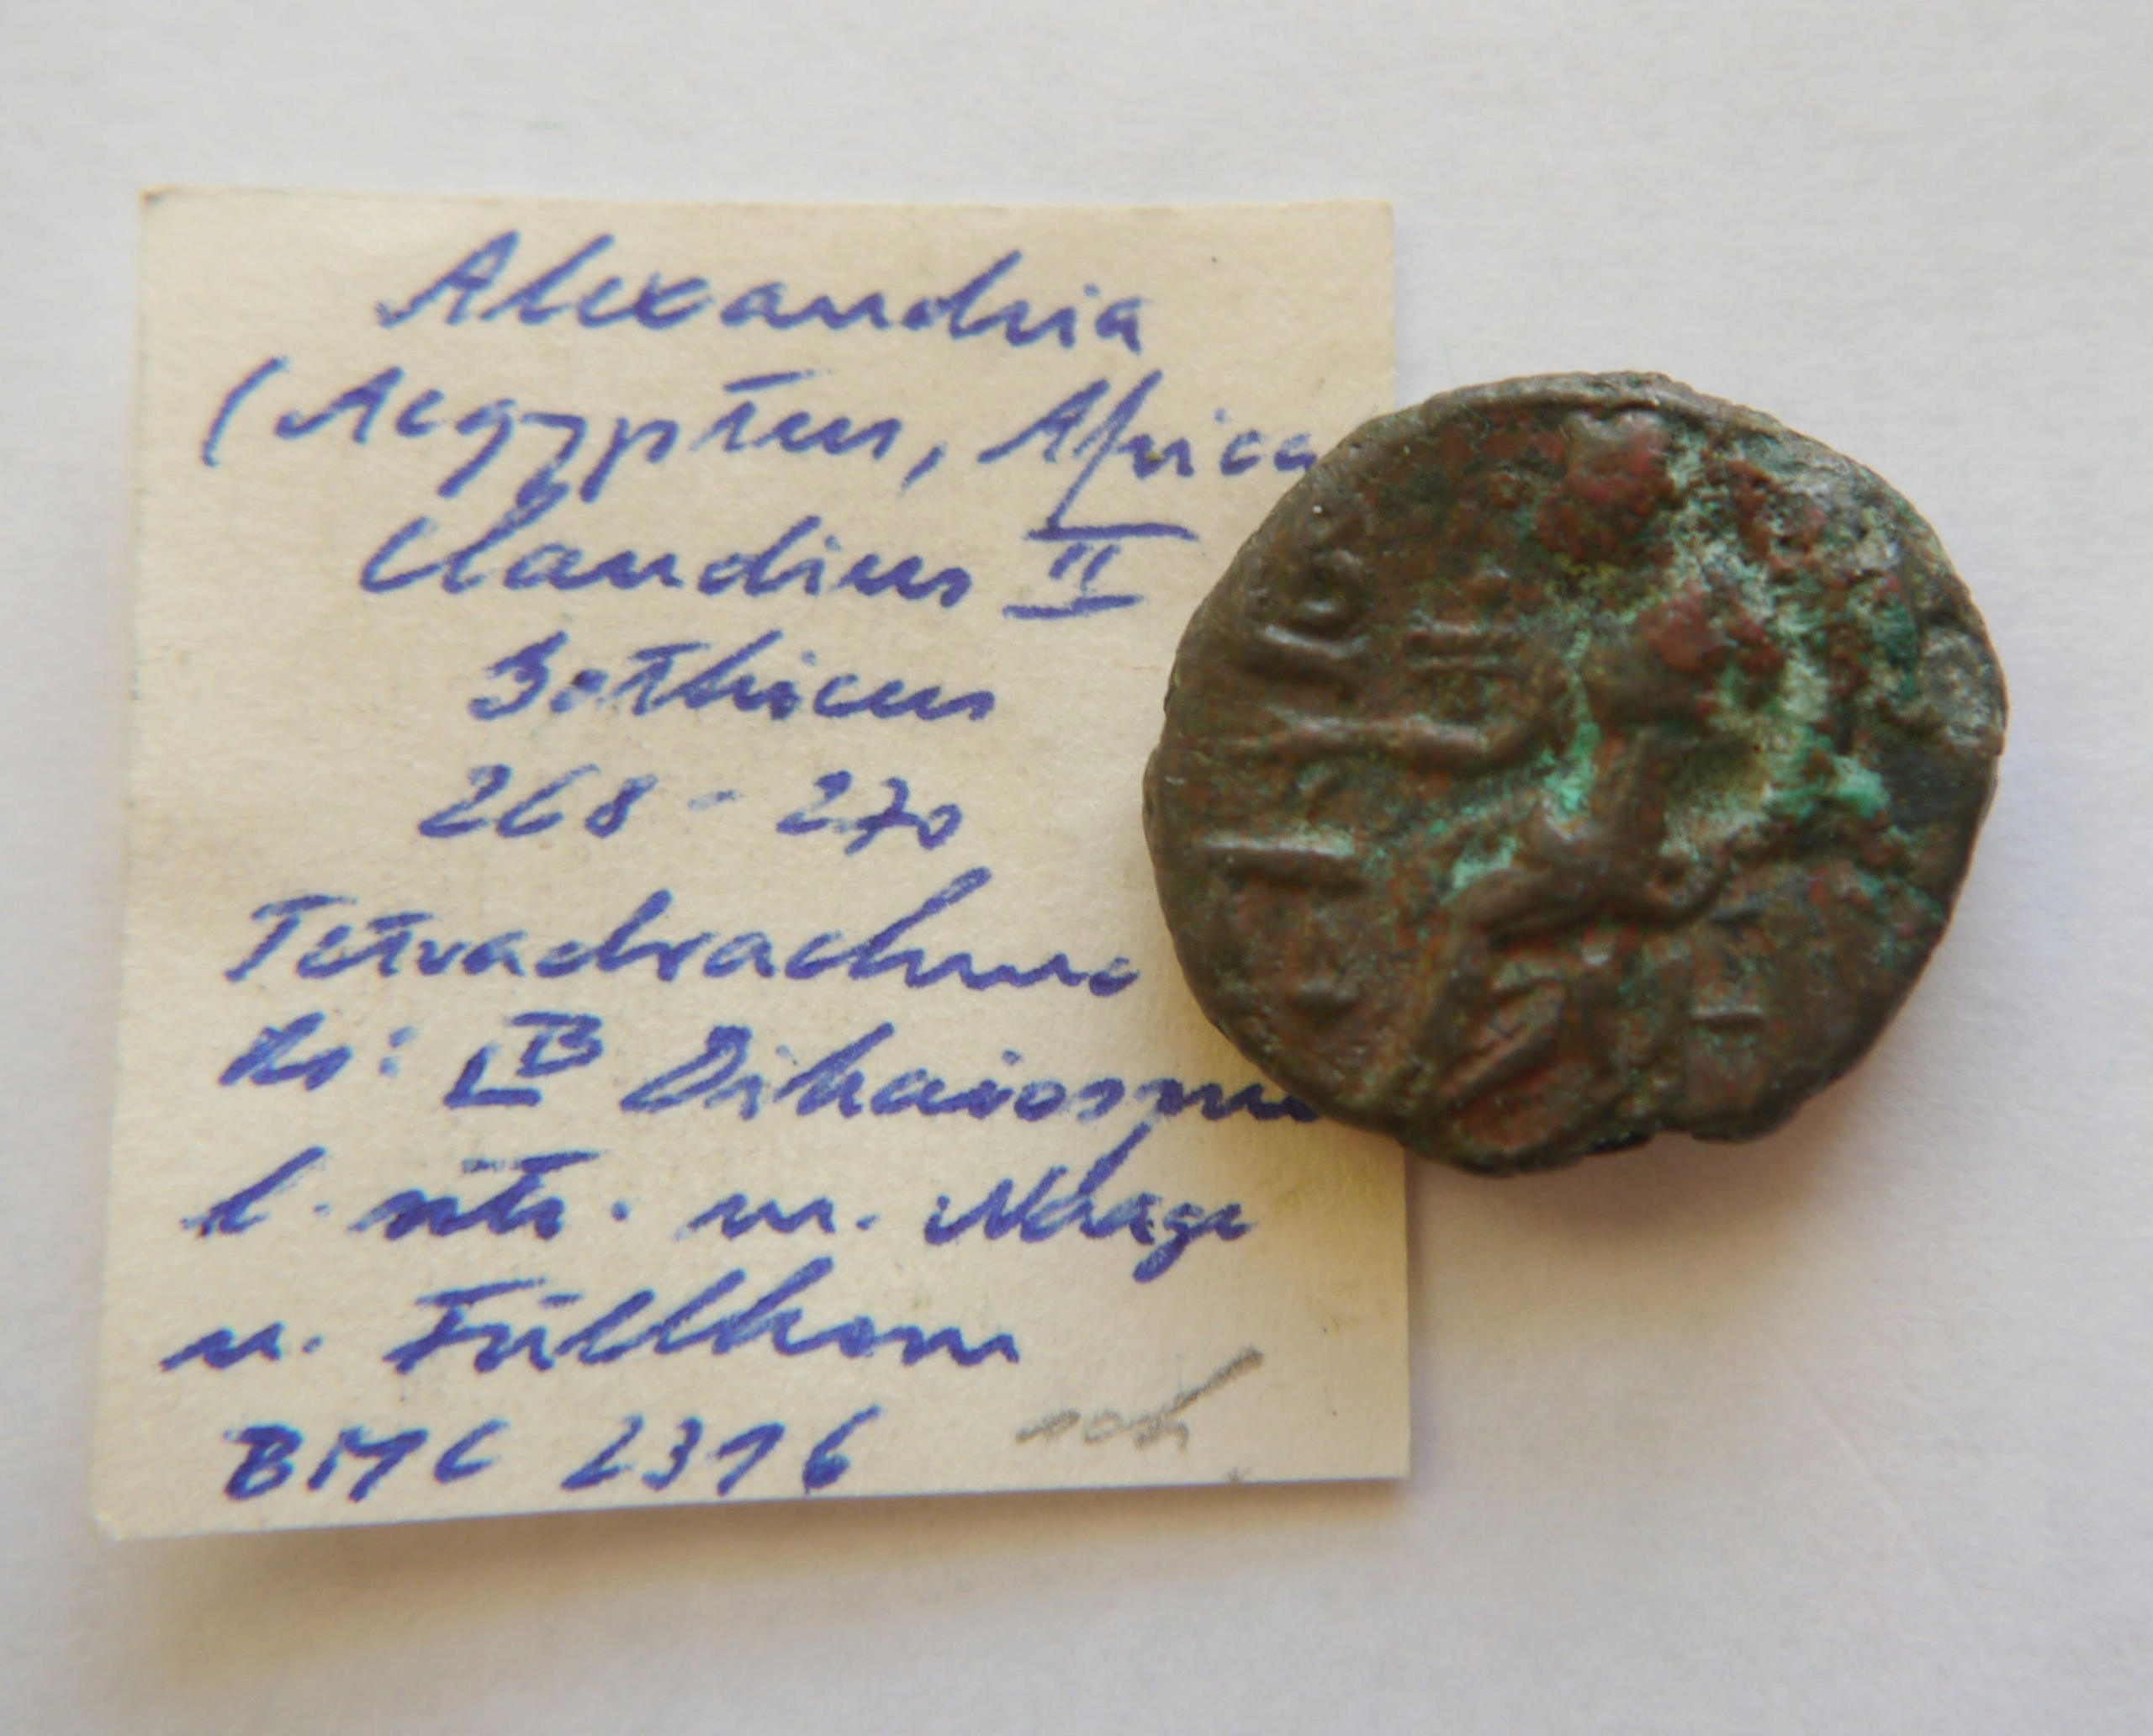 Alexandria
(Aegyptus, Africa
Claudius II
Gothicus
268 - 270
Tetradrachme
Rs: LB Dikaiosyne
l. sitz. m. Waage
u. Füllhorn
BMC 2316